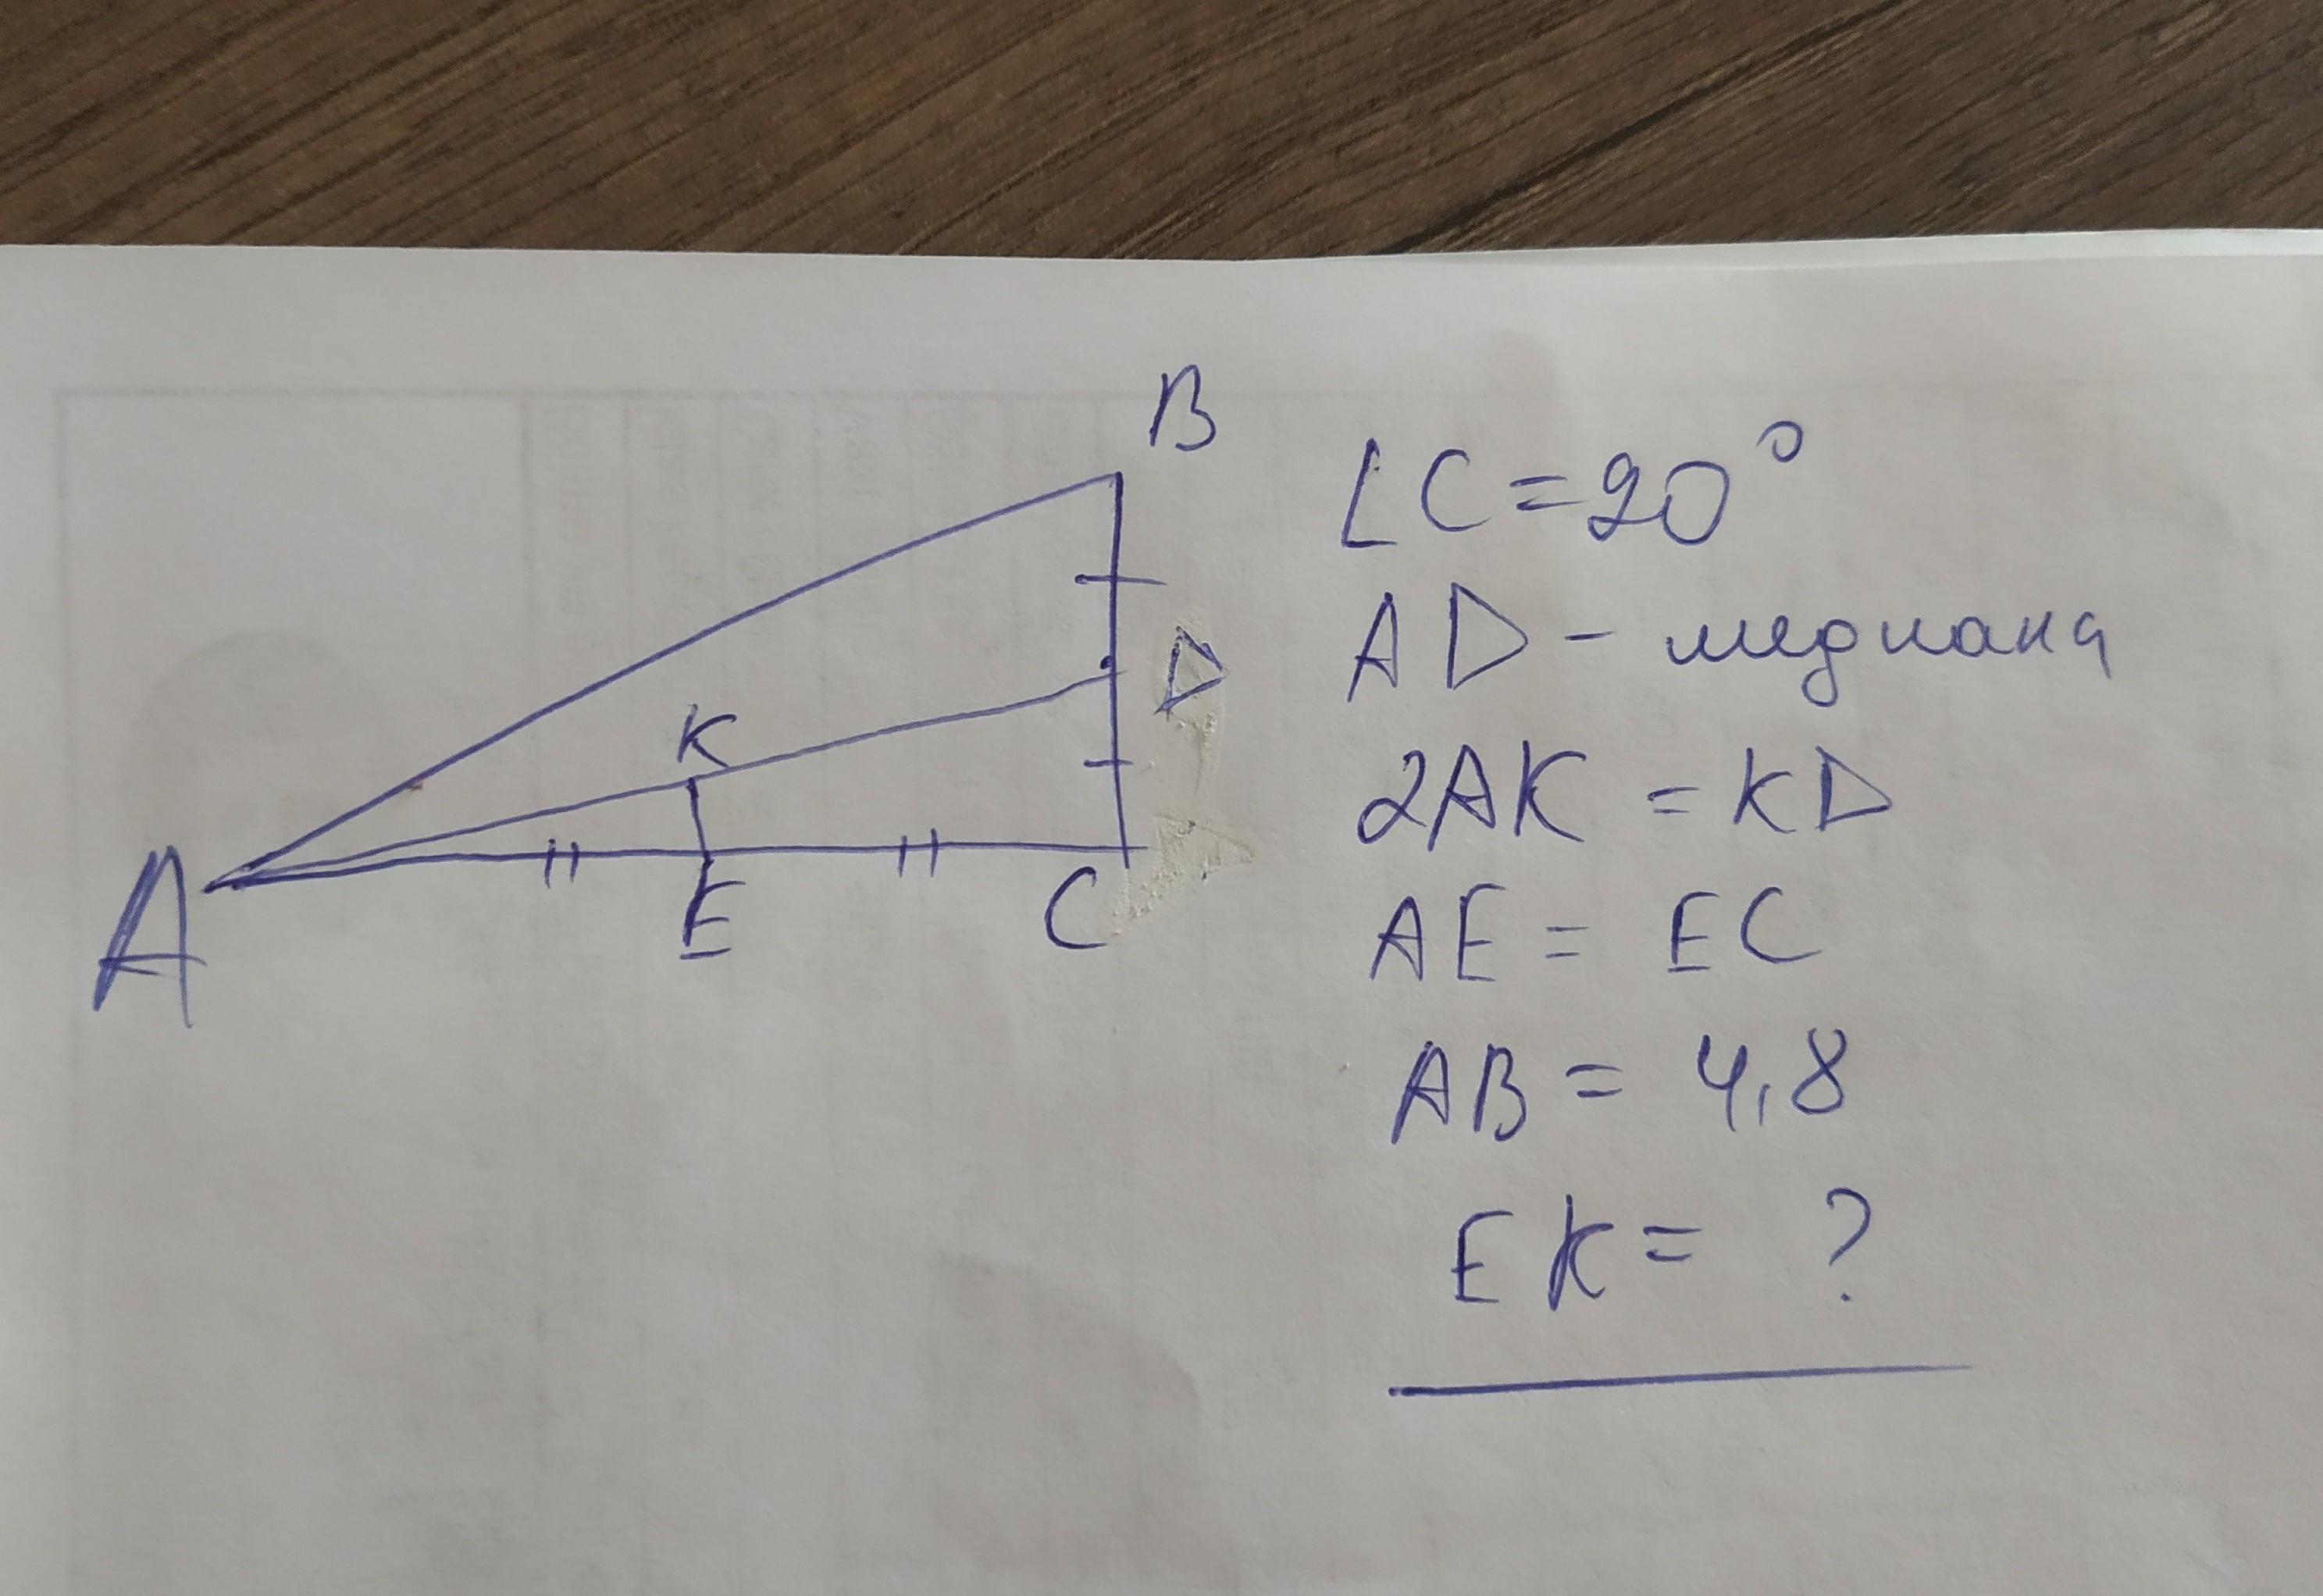 B
D
K
A
E
C
∠C = 90°
AD - медиана
2AK = KD
AE = EC
AB = 4,8
EK = ?